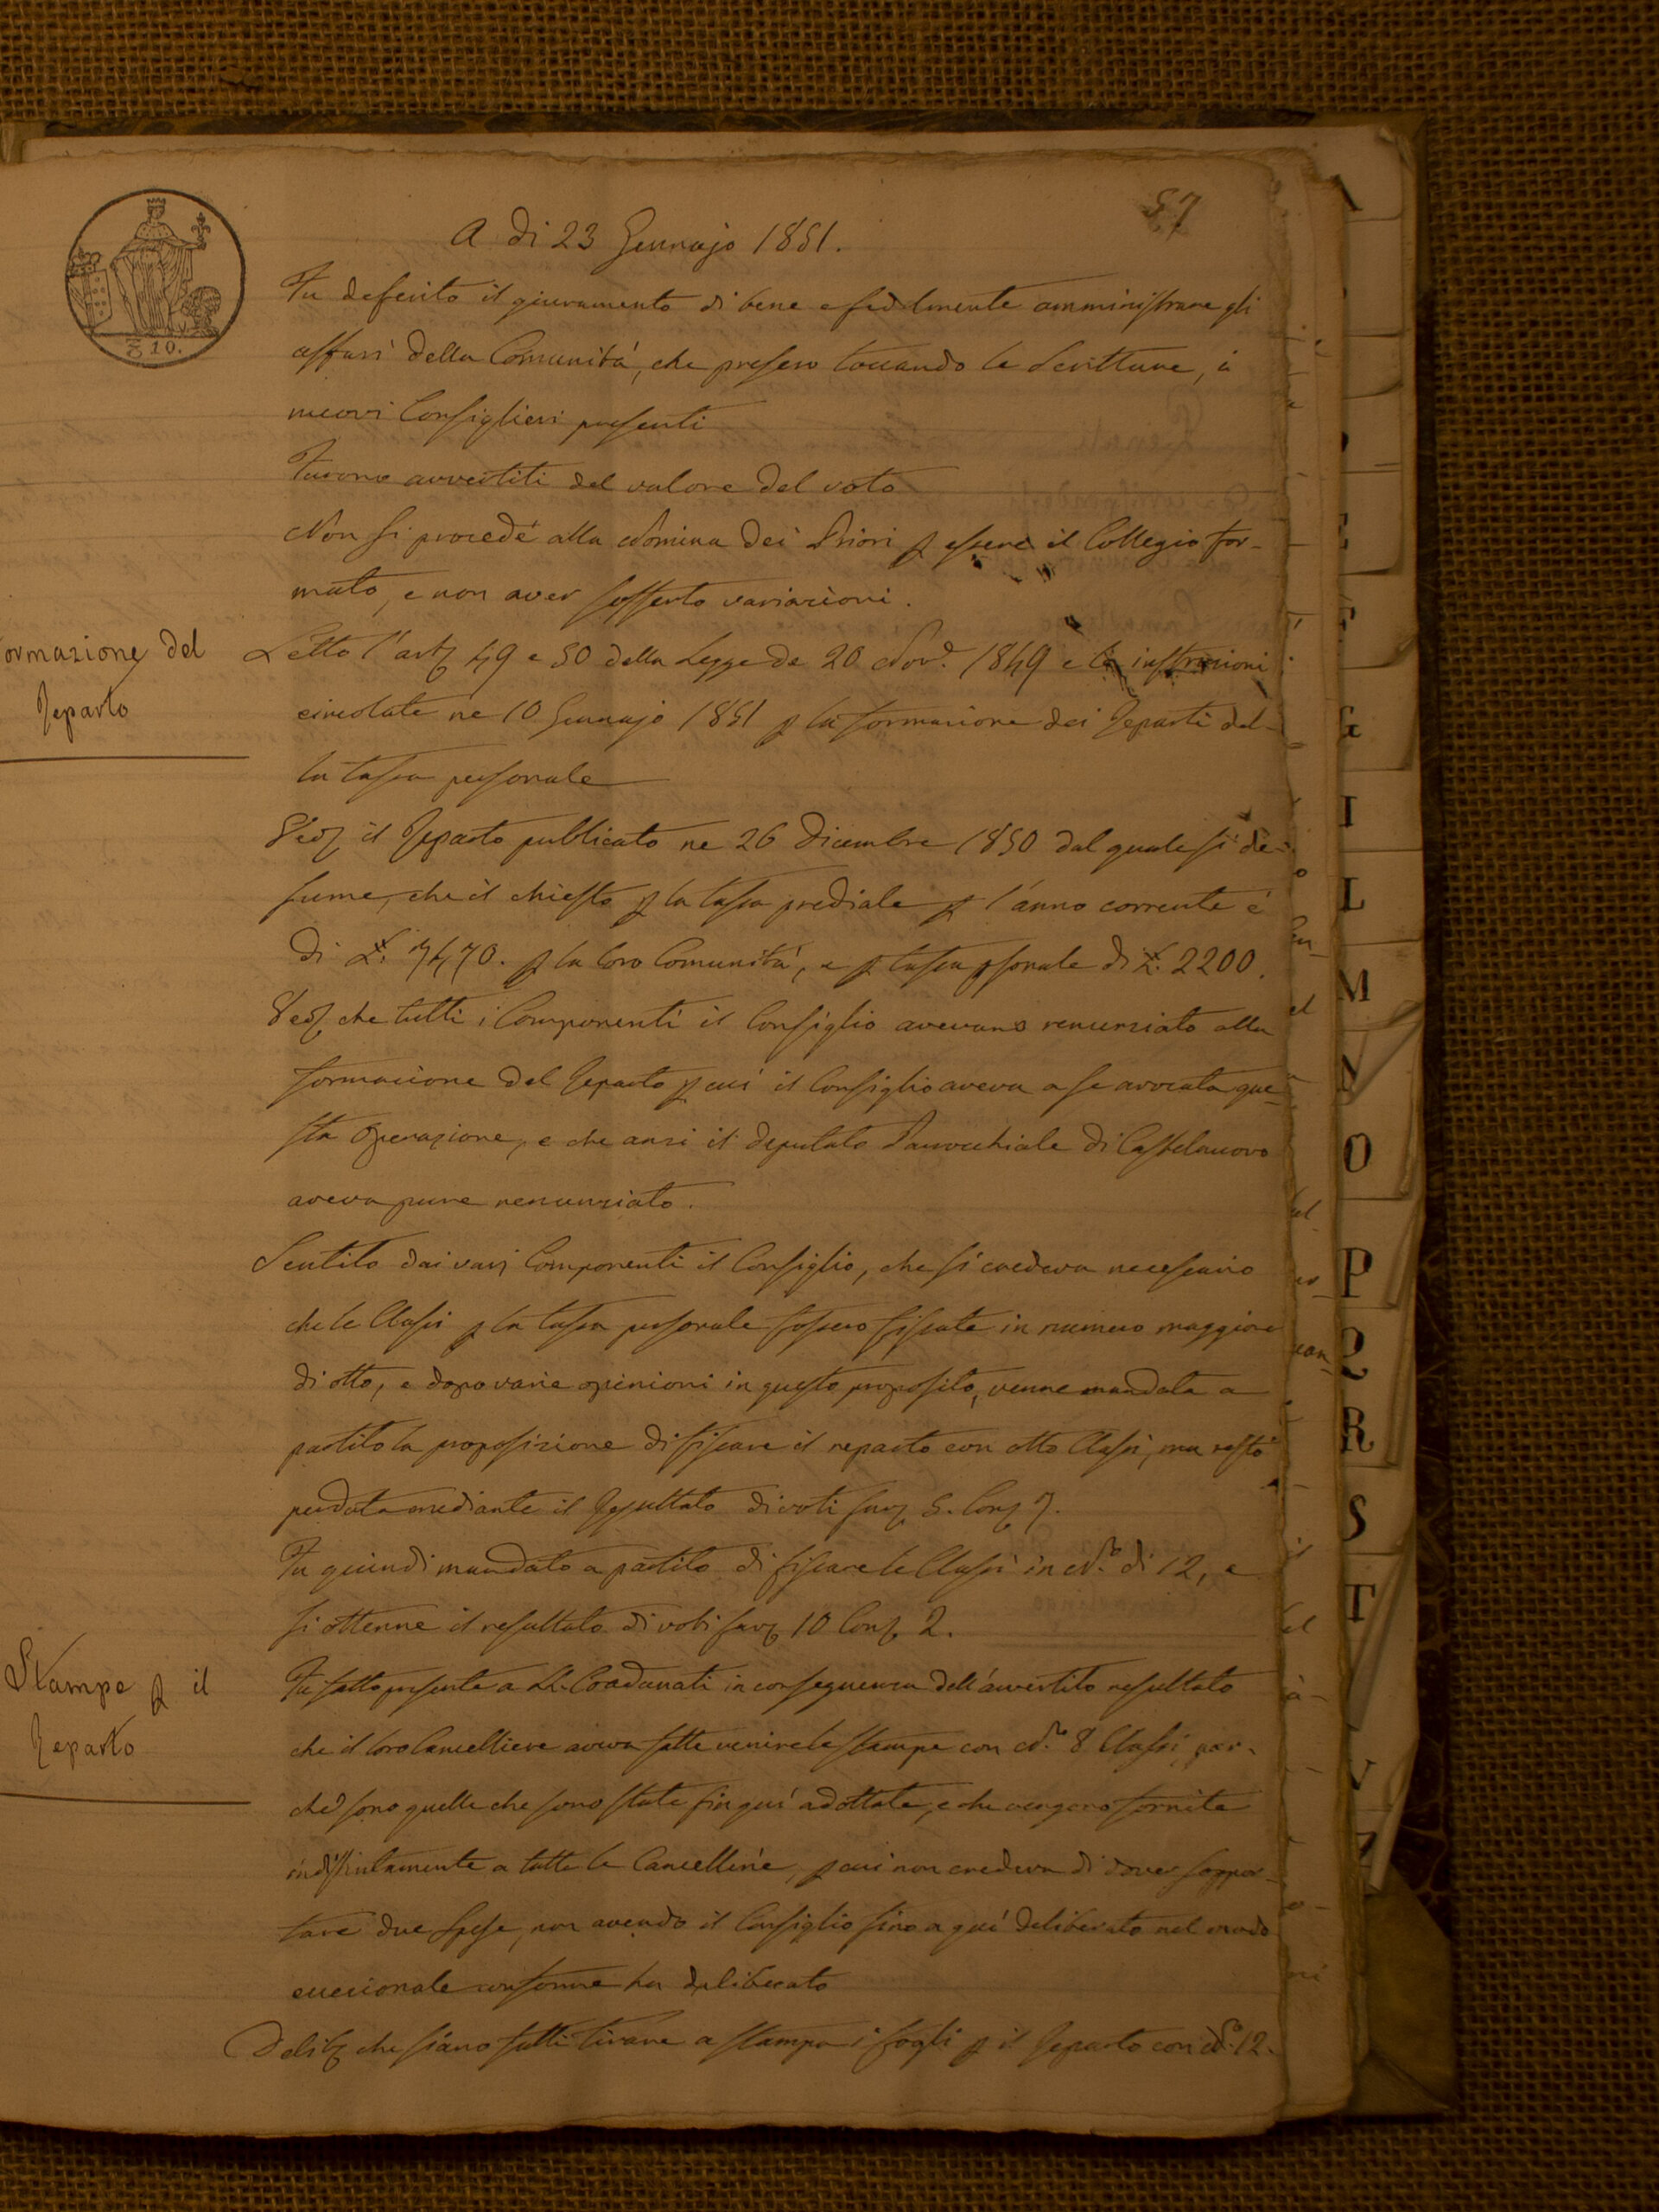 57
A di 23 Gennajo 1851.
₸ 10.
Fu deferito il giuramento di bene e fedelmente amministrare gli
affari della Comunità, che presero toccando le Scritture, a
nuovi Consiglieri presenti
Furono avvertiti del valore del voto
Non si procedè alla Nomina dei Priori p essere il Collegio for-
mato, e non aver sofferto variazioni.
ormazione del
Reparto
Letto l'art 49 e 50 della Legge de 20 Nov.e 1849 e le instruzioni
circolate ne 10 Gennajo 1851 p la formazione dei Reparti del-
la tassa personale
Ved il Reparto publicato ne 26 Dicembre 1850 dal quale si de-
sume, che il chiesto p la tassa prediale p l'anno corrente è
di L. 7470. p la loro Comunità, e p tassa psonale di L. 2200.
Ved che tutti i Componenti il Consiglio avevano renunziato alla
formazione del Reparto p cui il Consiglio aveva a se avvocata que-
sta Operazione, e che anzi il deputato Parrocchiale di Castelnuovo
aveva pure renunziato.
Sentito dai varj Componenti il Consiglio, che si credeva necessario
che le Classi p la tassa personale fossero fissate in numero maggiore
di otto, e dopo varie opinioni in questo proposito, venne mandata a
partito la proposizione di fissare il reparto con otto Classi, ma restò
perduta mediante il Resultato di voti fav 5. Con 7.
Fu quindi mandato a partito di fissare le Classi in N.o di 12, e
si ottenne il resultato di voti fav 10 Con 2.
Stampe p il
Reparto
Fu fatto presente a LL. Coadunati in conseguenza dell'avvertito resultato
che il loro Cancelliere aveva fatte venire le stampe con N.o 8 Classi, per-
chè sono quelle che sono state fin qui adottate, e che vengono fornite
indistintamente a tutte le Cancellerie, p cui non credeva di dover soppor-
tare due spese, non avendo il Consiglio fino a quì deliberato nel modo
eccezionale conforme ha deliberato
Delib che siano fatti tirare a stampa i fogli p il Reparto con N.o 12.
A
E
F
G
I
L
M
N
O
P
Q
R
S
T
V
Z